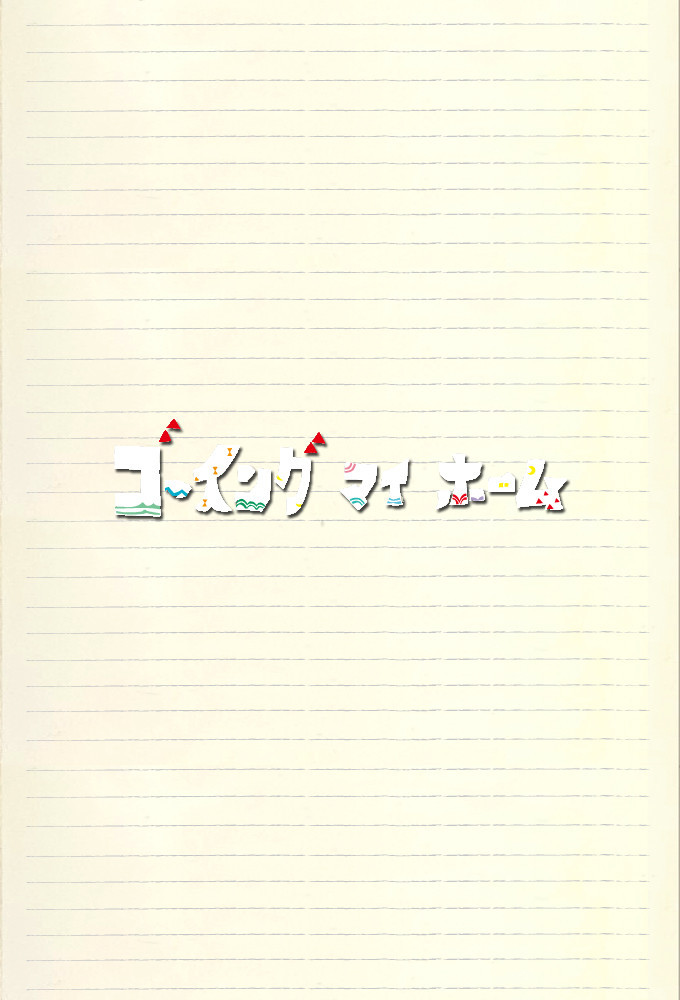 ゴーイング マイ ホーム